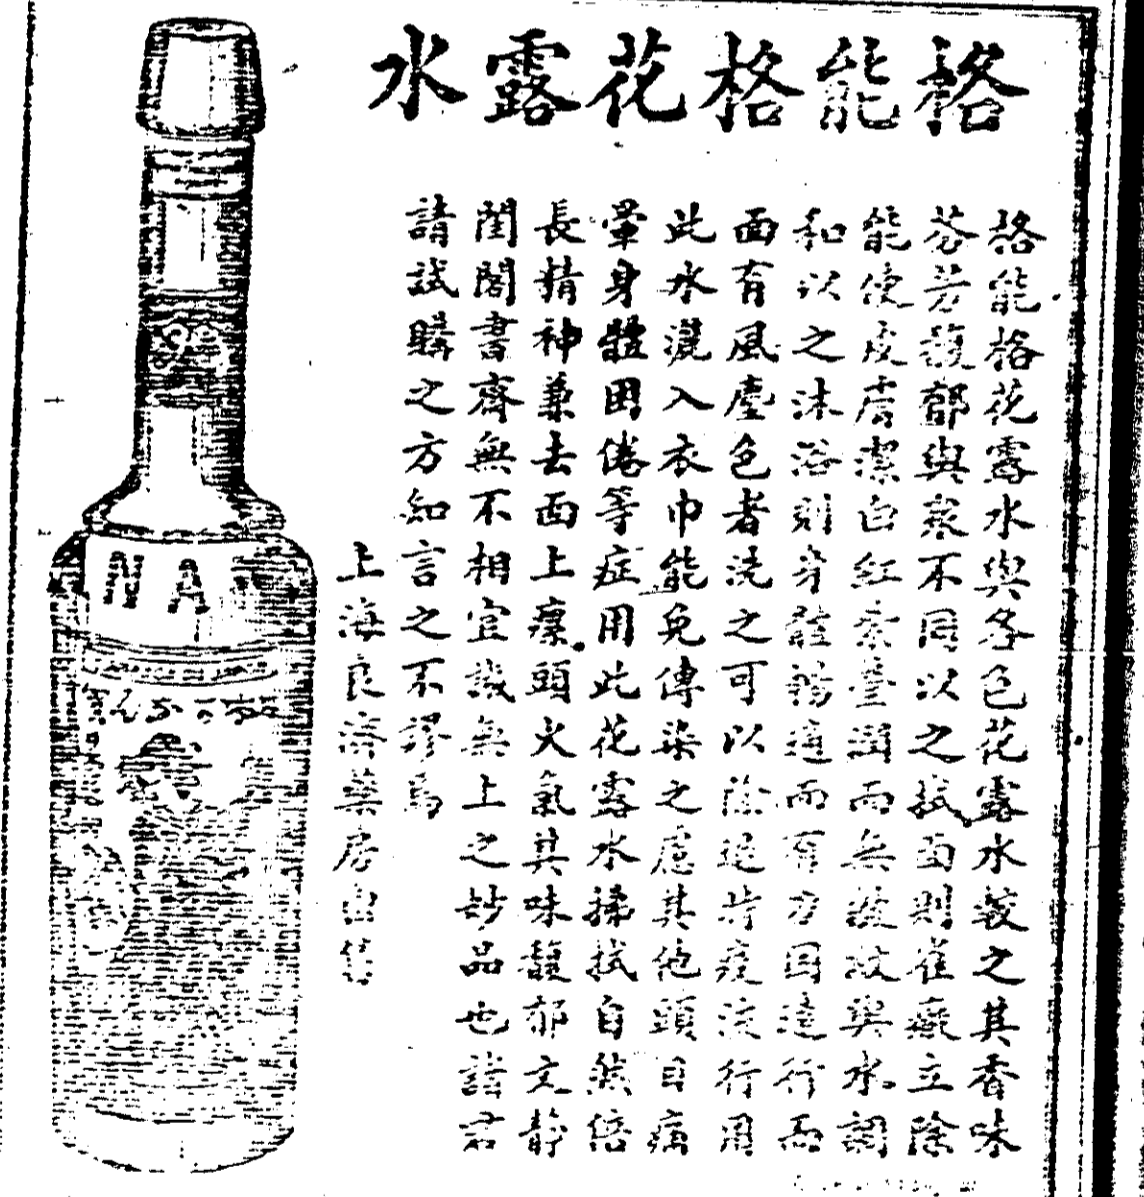 格能格花露水
格能格花露水與各色花露水較之其香味
芬芳馥郁與衆不同以之拭面則雀斑立除
能使皮膚潔白紅柔瑩潤而無皺紋與水調
和以之沐浴則身體暢適而有力因遠行而
面有風塵色者洗之可以除避時疫流行用
此水灑入衣巾能免傳染之慮其他頭目痛
暈身體困倦等症用此花露水搽拭自然倍
長精神兼去面上瘰頭火氣其味馥郁文靜
閨閣書齋無不相宜誠無上之妙品也諸君
請試購之方知言之不謬焉
上海良濟藥房出售